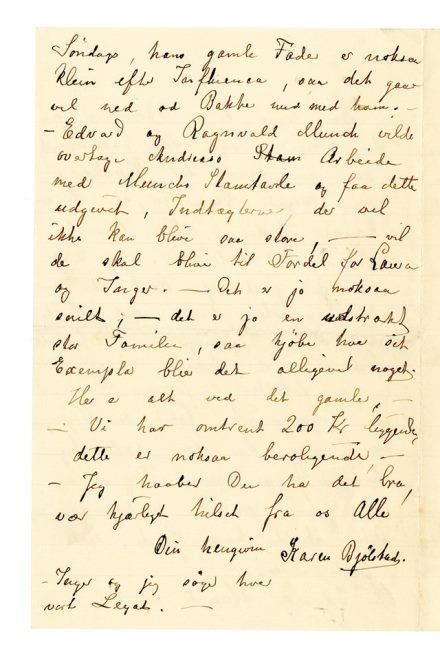 Søndags, hans gamle Fader er noksaa
klein efter Influenca, saa det gaar
vel ned ad Bakke nu med ham. –
– Edvard og Ragnvald Munch vilde
overtage Andreas's Stam Arbeide
med Munchs Stamtavle og faa dette
udgivet, Indtægterne, der vel
ikke kan blive saa store, — vil
de skal blive til Fordel for Laura
og Inger. — Det er jo noksaa
snilt; — det er jo en udstrakt
stor Familie, saa kjøbe hver ét
Exemplar blir det alligevel noget.
Her er alt ved det gamle, –
– Vi har omtrent 200 Kr liggende,
dette er noksaa beroligende, –
– Jeg haaber Du har det bra,
vær kjærligt hilset fra os Alle
Din hengivne Karen Bjølstad.
– Inger og jeg søge hver
vort Legat. —